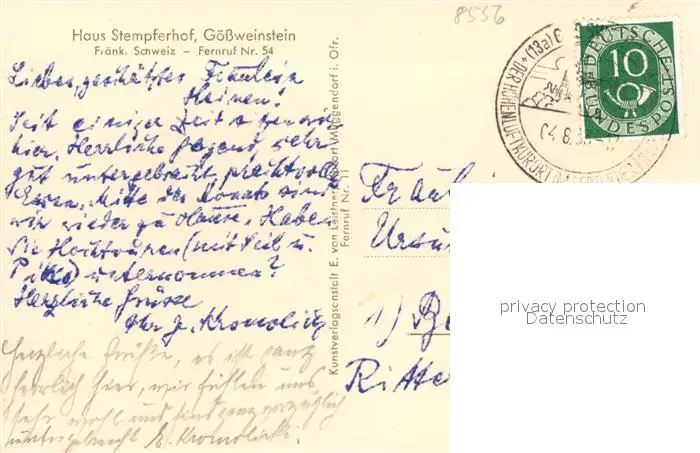 8556
Haus Stempferhof, Gößweinstein
Fränk. Schweiz – Fernruf Nr. 54
Liebes, geschätztes Fräulein
Heinen!
Seit einiger Zeit sind wir
hier. Herrliche Gegend, sehr
gut untergebracht, prachtvolles
Essen. Mitte des Monats sind
wir wieder zu Hause. Haben
Sie Hochtouren (mit Seil u.
Pikel) unternommen?
Herzliche Grüsse
Ihr J. Kromolicki
Herzliche Grüße, es ist ganz
herrlich hier, wir fühlen uns
sehr wohl und sind ganz vorzüglich
untergebracht E. Kromolicki.
Kunstverlagsanstalt E. von Leistner, Muggendorf i. Ofr.
Fernruf Nr. 11
(13a) G
DER HÖHENLUFTKURORT
04.8.5
DEUTSCHE
BUNDESPOST
10
Fräulein
Ursu
1) Be
Ritte
privacy protection
Datenschutz